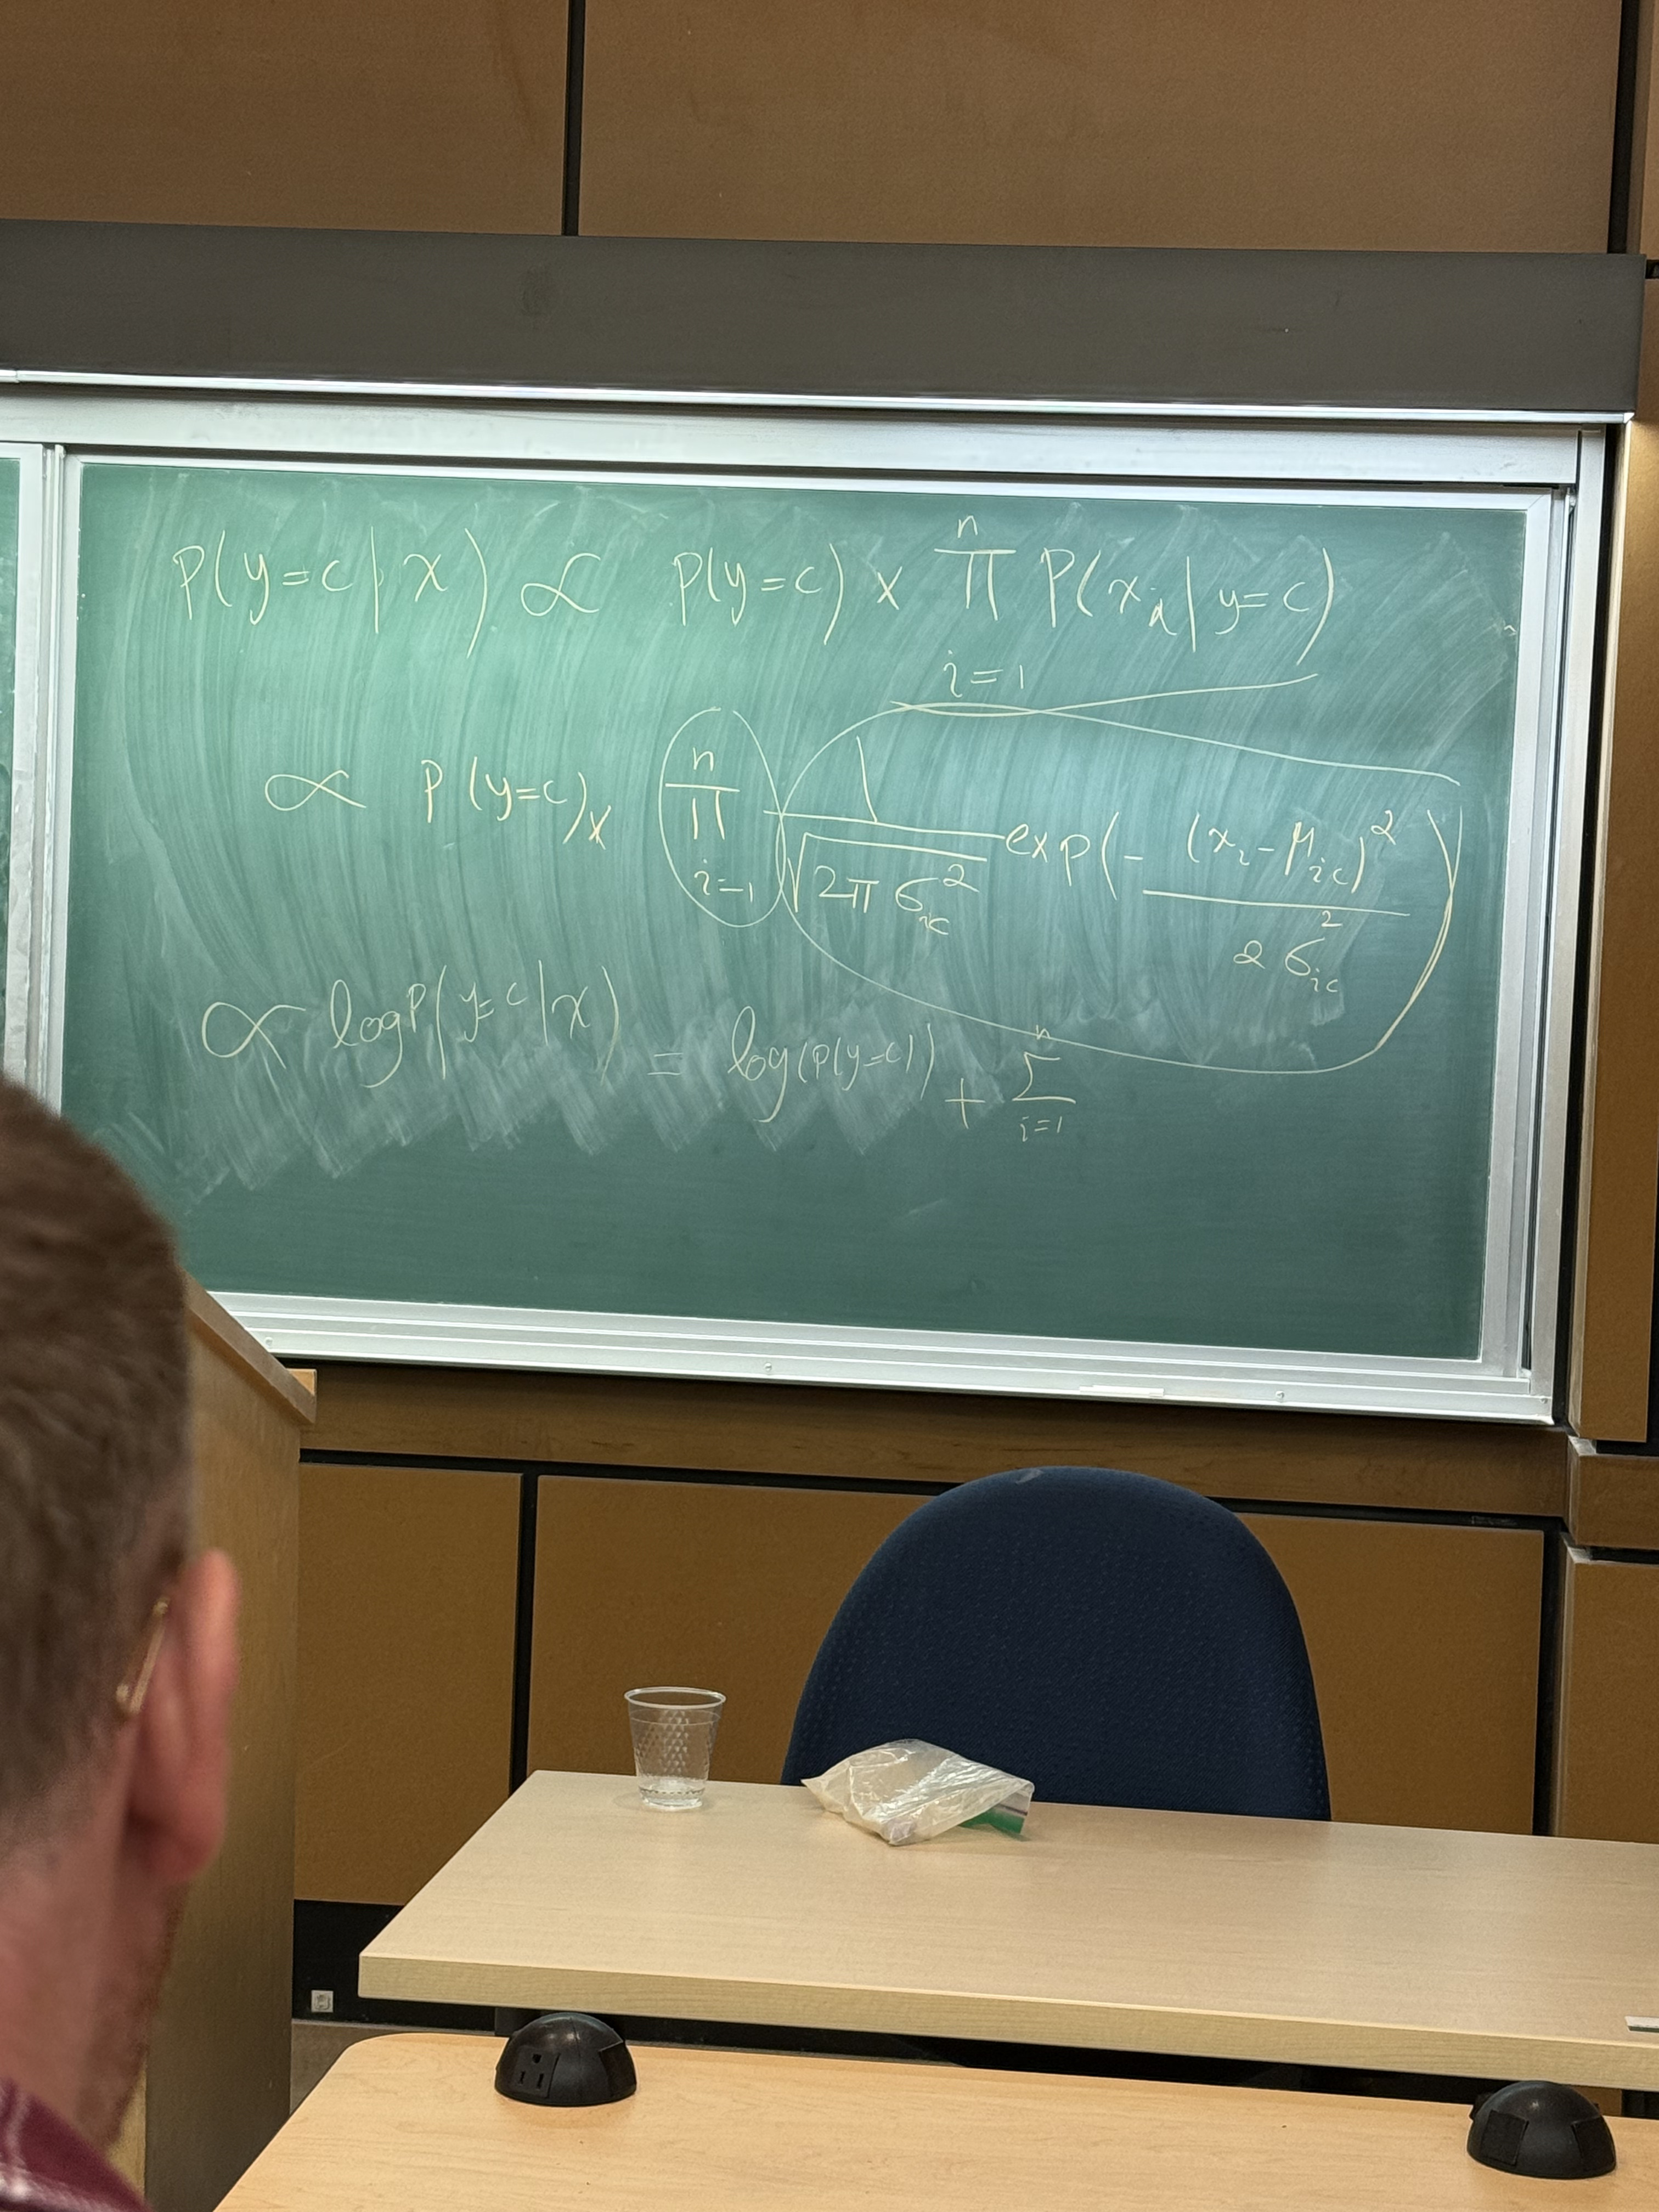 P(y=c|x) ∝ P(y=c) × ∏_{i=1}^{n} P(x_i|y=c)
∝ P(y=c) × ∏_{i=1}^{n} 1/√(2πσ_{ic}^2) exp(-(x_i-μ_{ic})^2/(2σ_{ic}^2))
∝ log P(y=c|x) = log(P(y=c)) + ∑_{i=1}^{n}